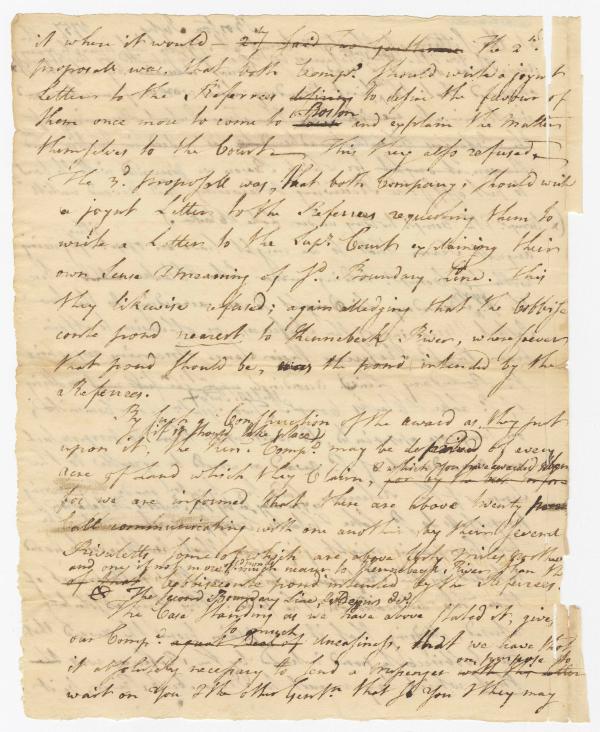 it where it would – 2dly said two Gentlemen The 2d.
proposall was, that both Compys. Should write a joynt
Letters to the Referrees desiring to desire the favour of
them once more to come to Boston and explain the Matter
themselves to the Court This they also refused,
The 3d. proposall was, that both Companys Should write
a joynt Letter to the Referrees requesting them to
write a Letter to the Supr. Court explaining their
own Sense & meaning of sd. Boundary Line. This
they likewise refused; again alledging that the Cobbise
conte pond nearest to Kennebeck River, wheresoever
that pond should be, was the pond intended by the
Referrees.
By Such a Construction of the award as they put
(if it should take place)
upon it, the Ken. Compy. may be deprived of every
acre of Land which they Claim, & which you have awarded
for we are informed that there are above twenty
all communicating with one another, by their several
Rivuletts, some of which are above forty miles
and any if not more of much nearer to Kennebeck River than the
of that Cobbiseconte pond intended by the Referrees.
& The second Boundary Line, & Begins &c
The Case standing as we have above stated it, give
our Compy. a great Deal of so much uneasiness, that we have
it absolutely necessary to send a messenger on purpose to
with this letter
wait on You & the other Gentn. that if You & they may